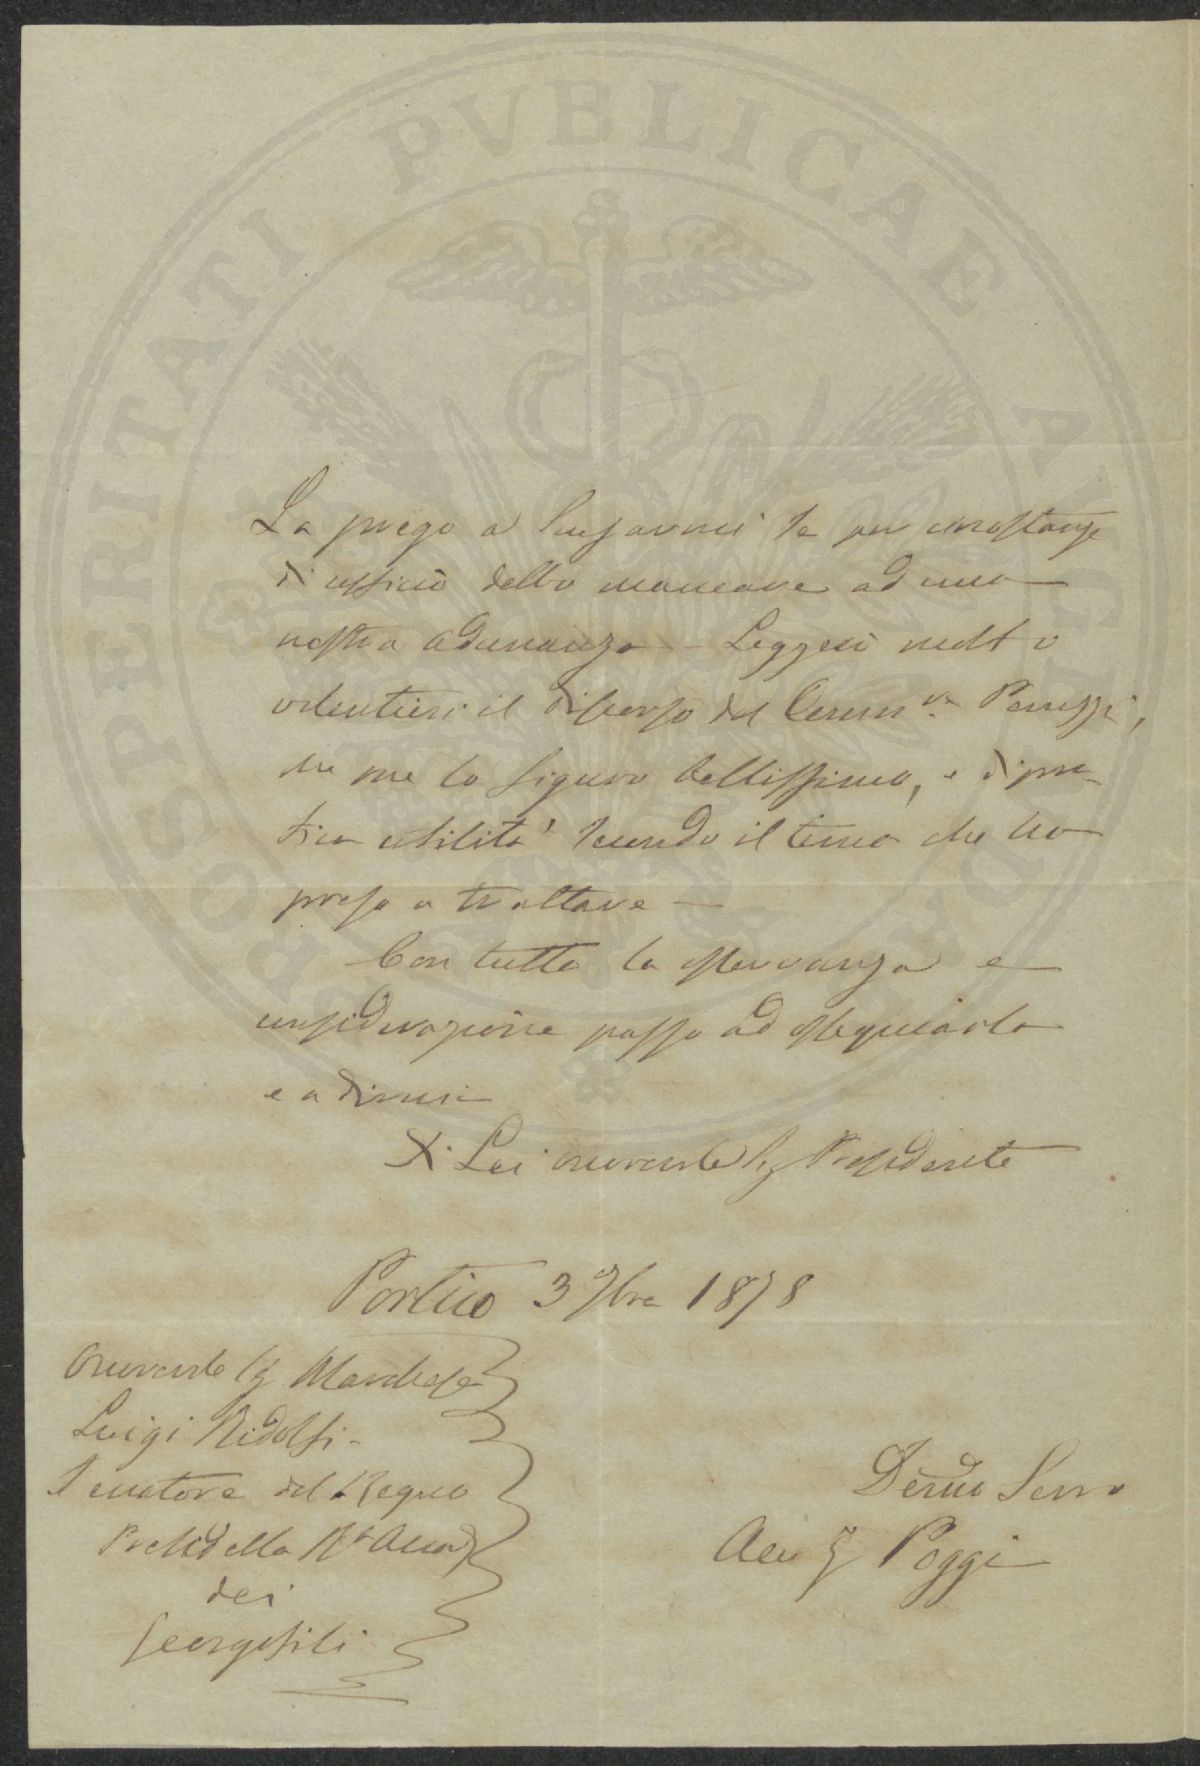 PROSPERITATI PVBLICAE AVGENDAE
La prego a scusarmi se per circostanze
di ufficio debbo mancare ad una
nostra adunanza - Leggerei molto
volentieri il discorso del Peruzzi,
che me lo figuro bellissimo, e di pra-
tica utilità secondo il tema che ha
preso a trattare -
Con tutta la osservanza e
considerazione passo ad ossequiarla
e a dirmi
Di Lei onorevole Presidente
Portico 3 9bre 1878
Onorevole Marchese
Luigi Ridolfi -
Senatore del Regno
Presid della Accad
dei
Georgofili
Devmo Servo
Poggi